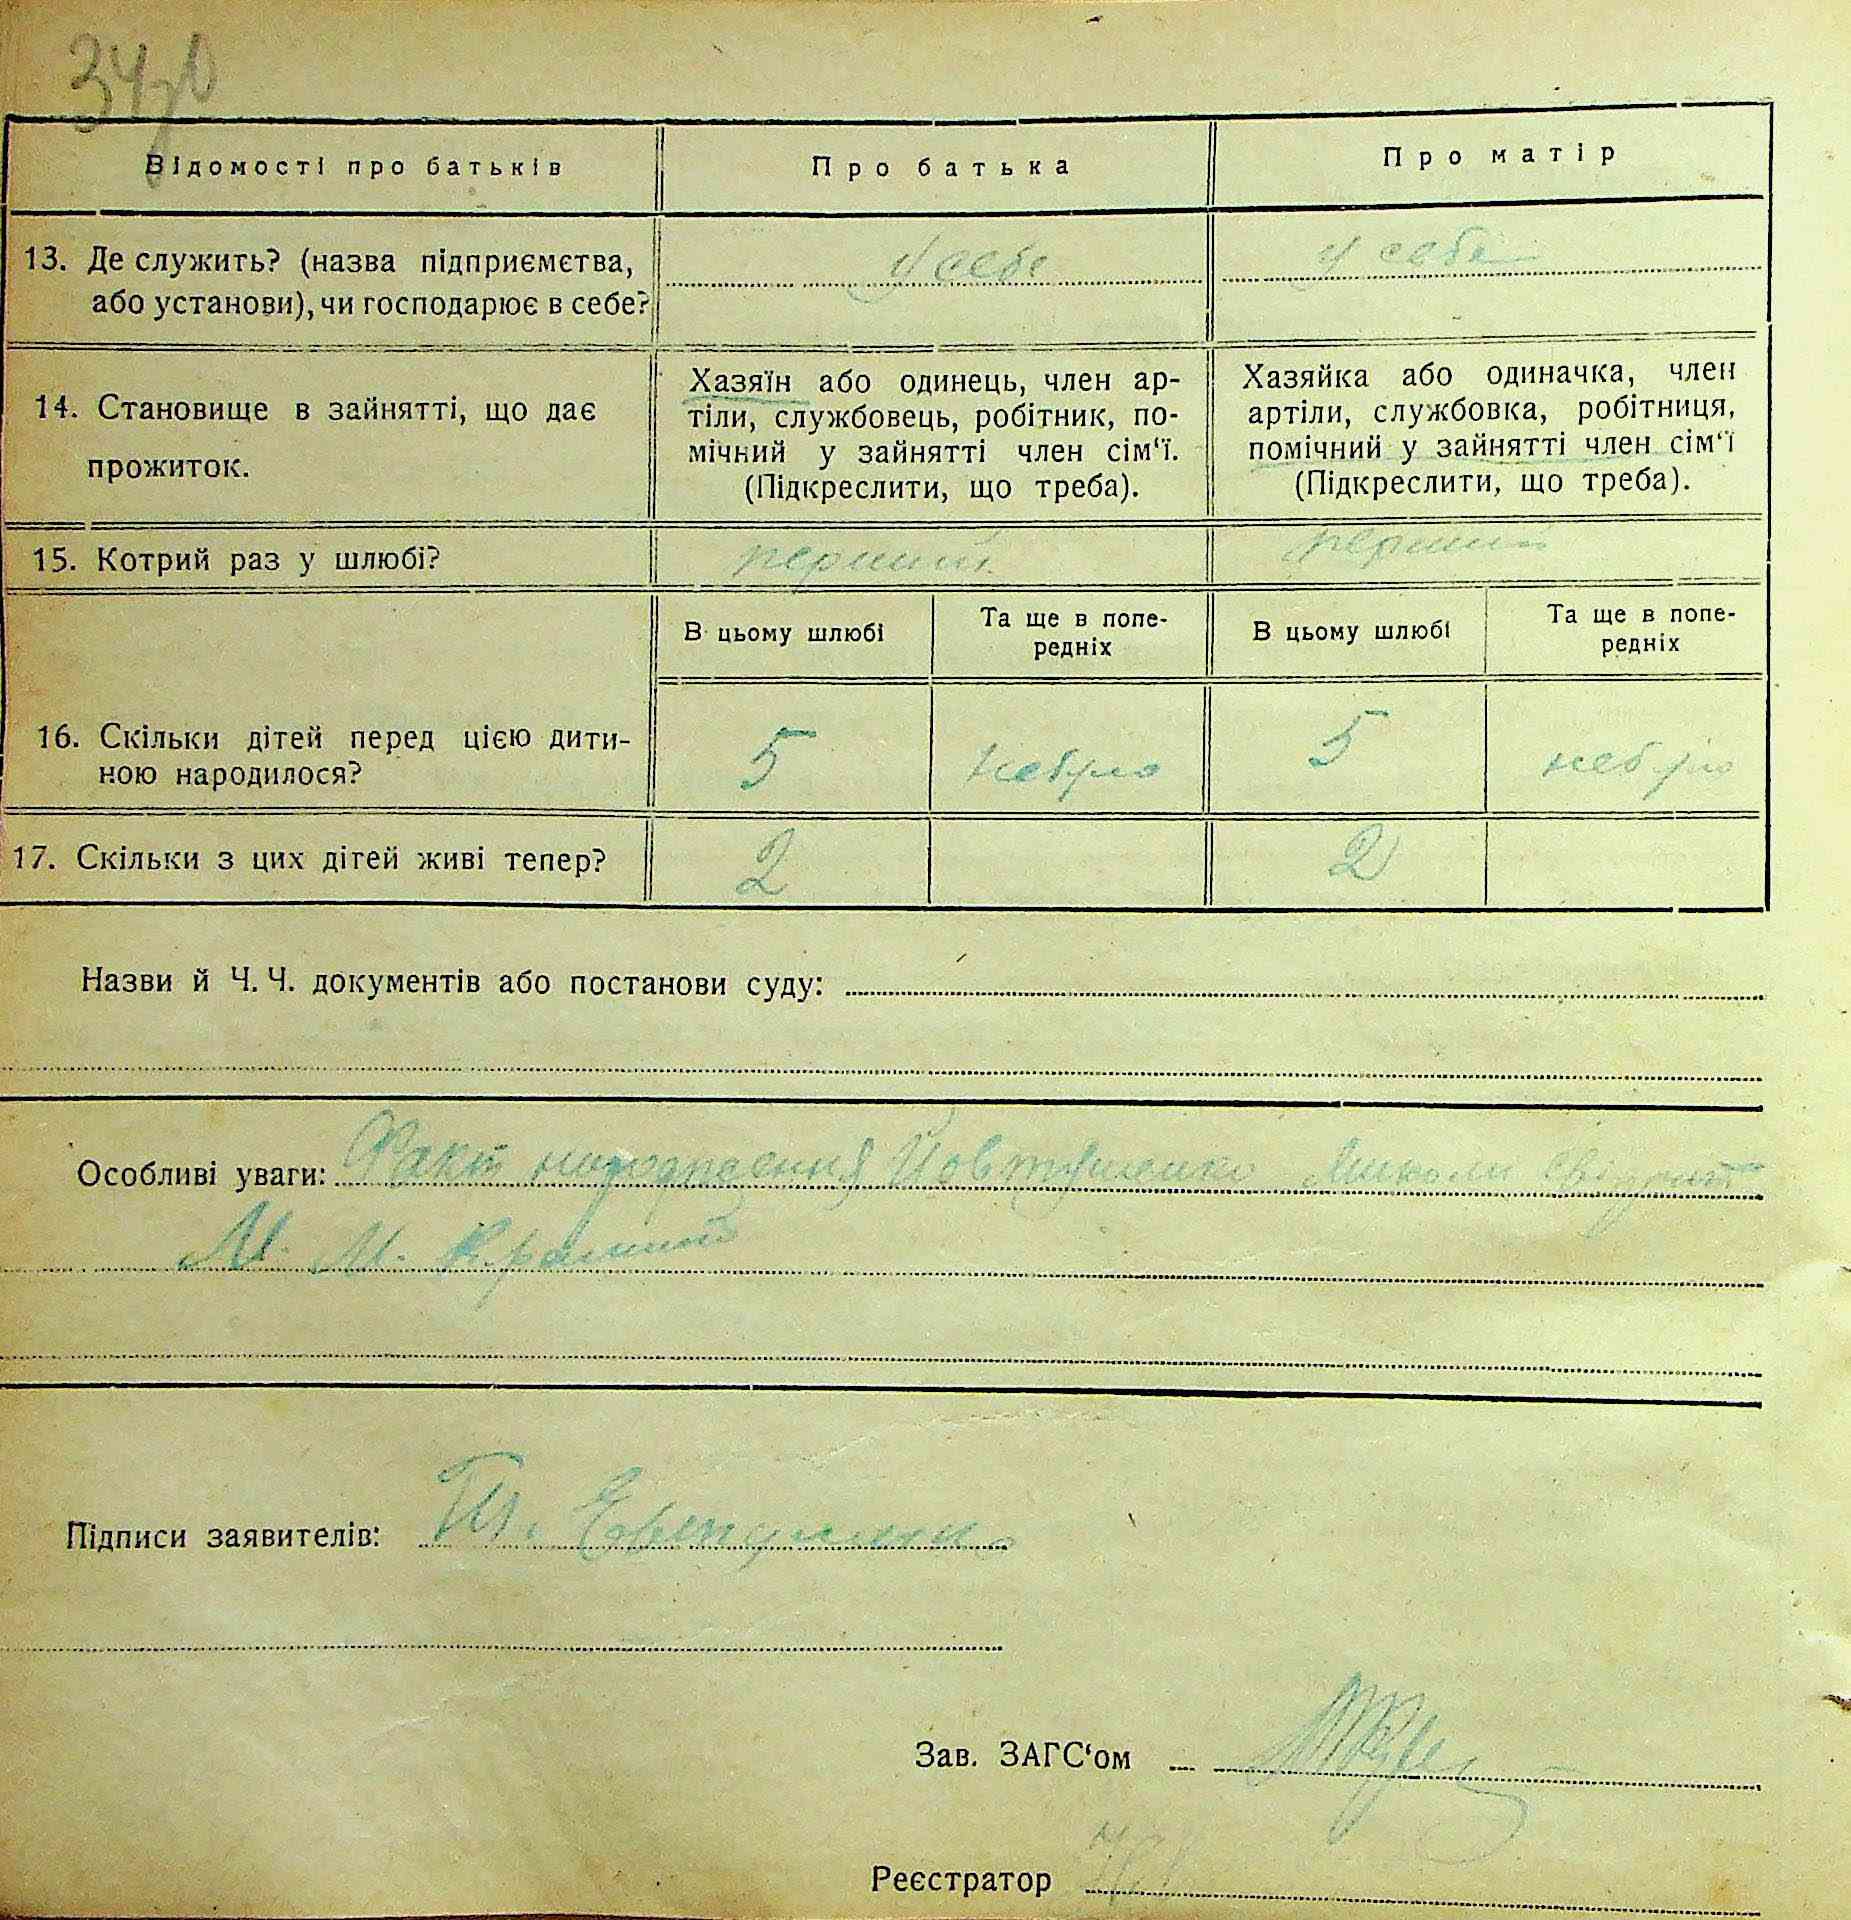 Відомості про батьків
Про батька
Про матір
13. Де служить? (назва підприємєтва,
або установи), чи господарює в себе?
у себе
у себе
14. Становище в зайнятті, що дає
прожиток.
Хазяїн або одинець, член ар-
тіли, службовець, робітник, по-
мічний у зайнятті член сім‘ї.
(Підкреслити, що треба).
Хазяйка або одиначка, член
артіли, службовка, робітниця,
помічний у зайнятті член сім‘ї
(Підкреслити, що треба).
15. Котрий раз у шлюбі?
перший
перший
В цьому шлюбі
Та ще в попе-
редніх
В цьому шлюбі
Та ще в попе-
редніх
16. Скільки дітей перед цією дити-
ною народилося?
5
небуло
5
небуло
17. Скільки з цих дітей живі тепер?
2
2
Назви й Ч. Ч. документів або постанови суду:
Особливі уваги: Факт народження Йовтушенко Миколи
М. М.
Підписи заявителів:
Зав. ЗАГС‘ом
Реєстратор